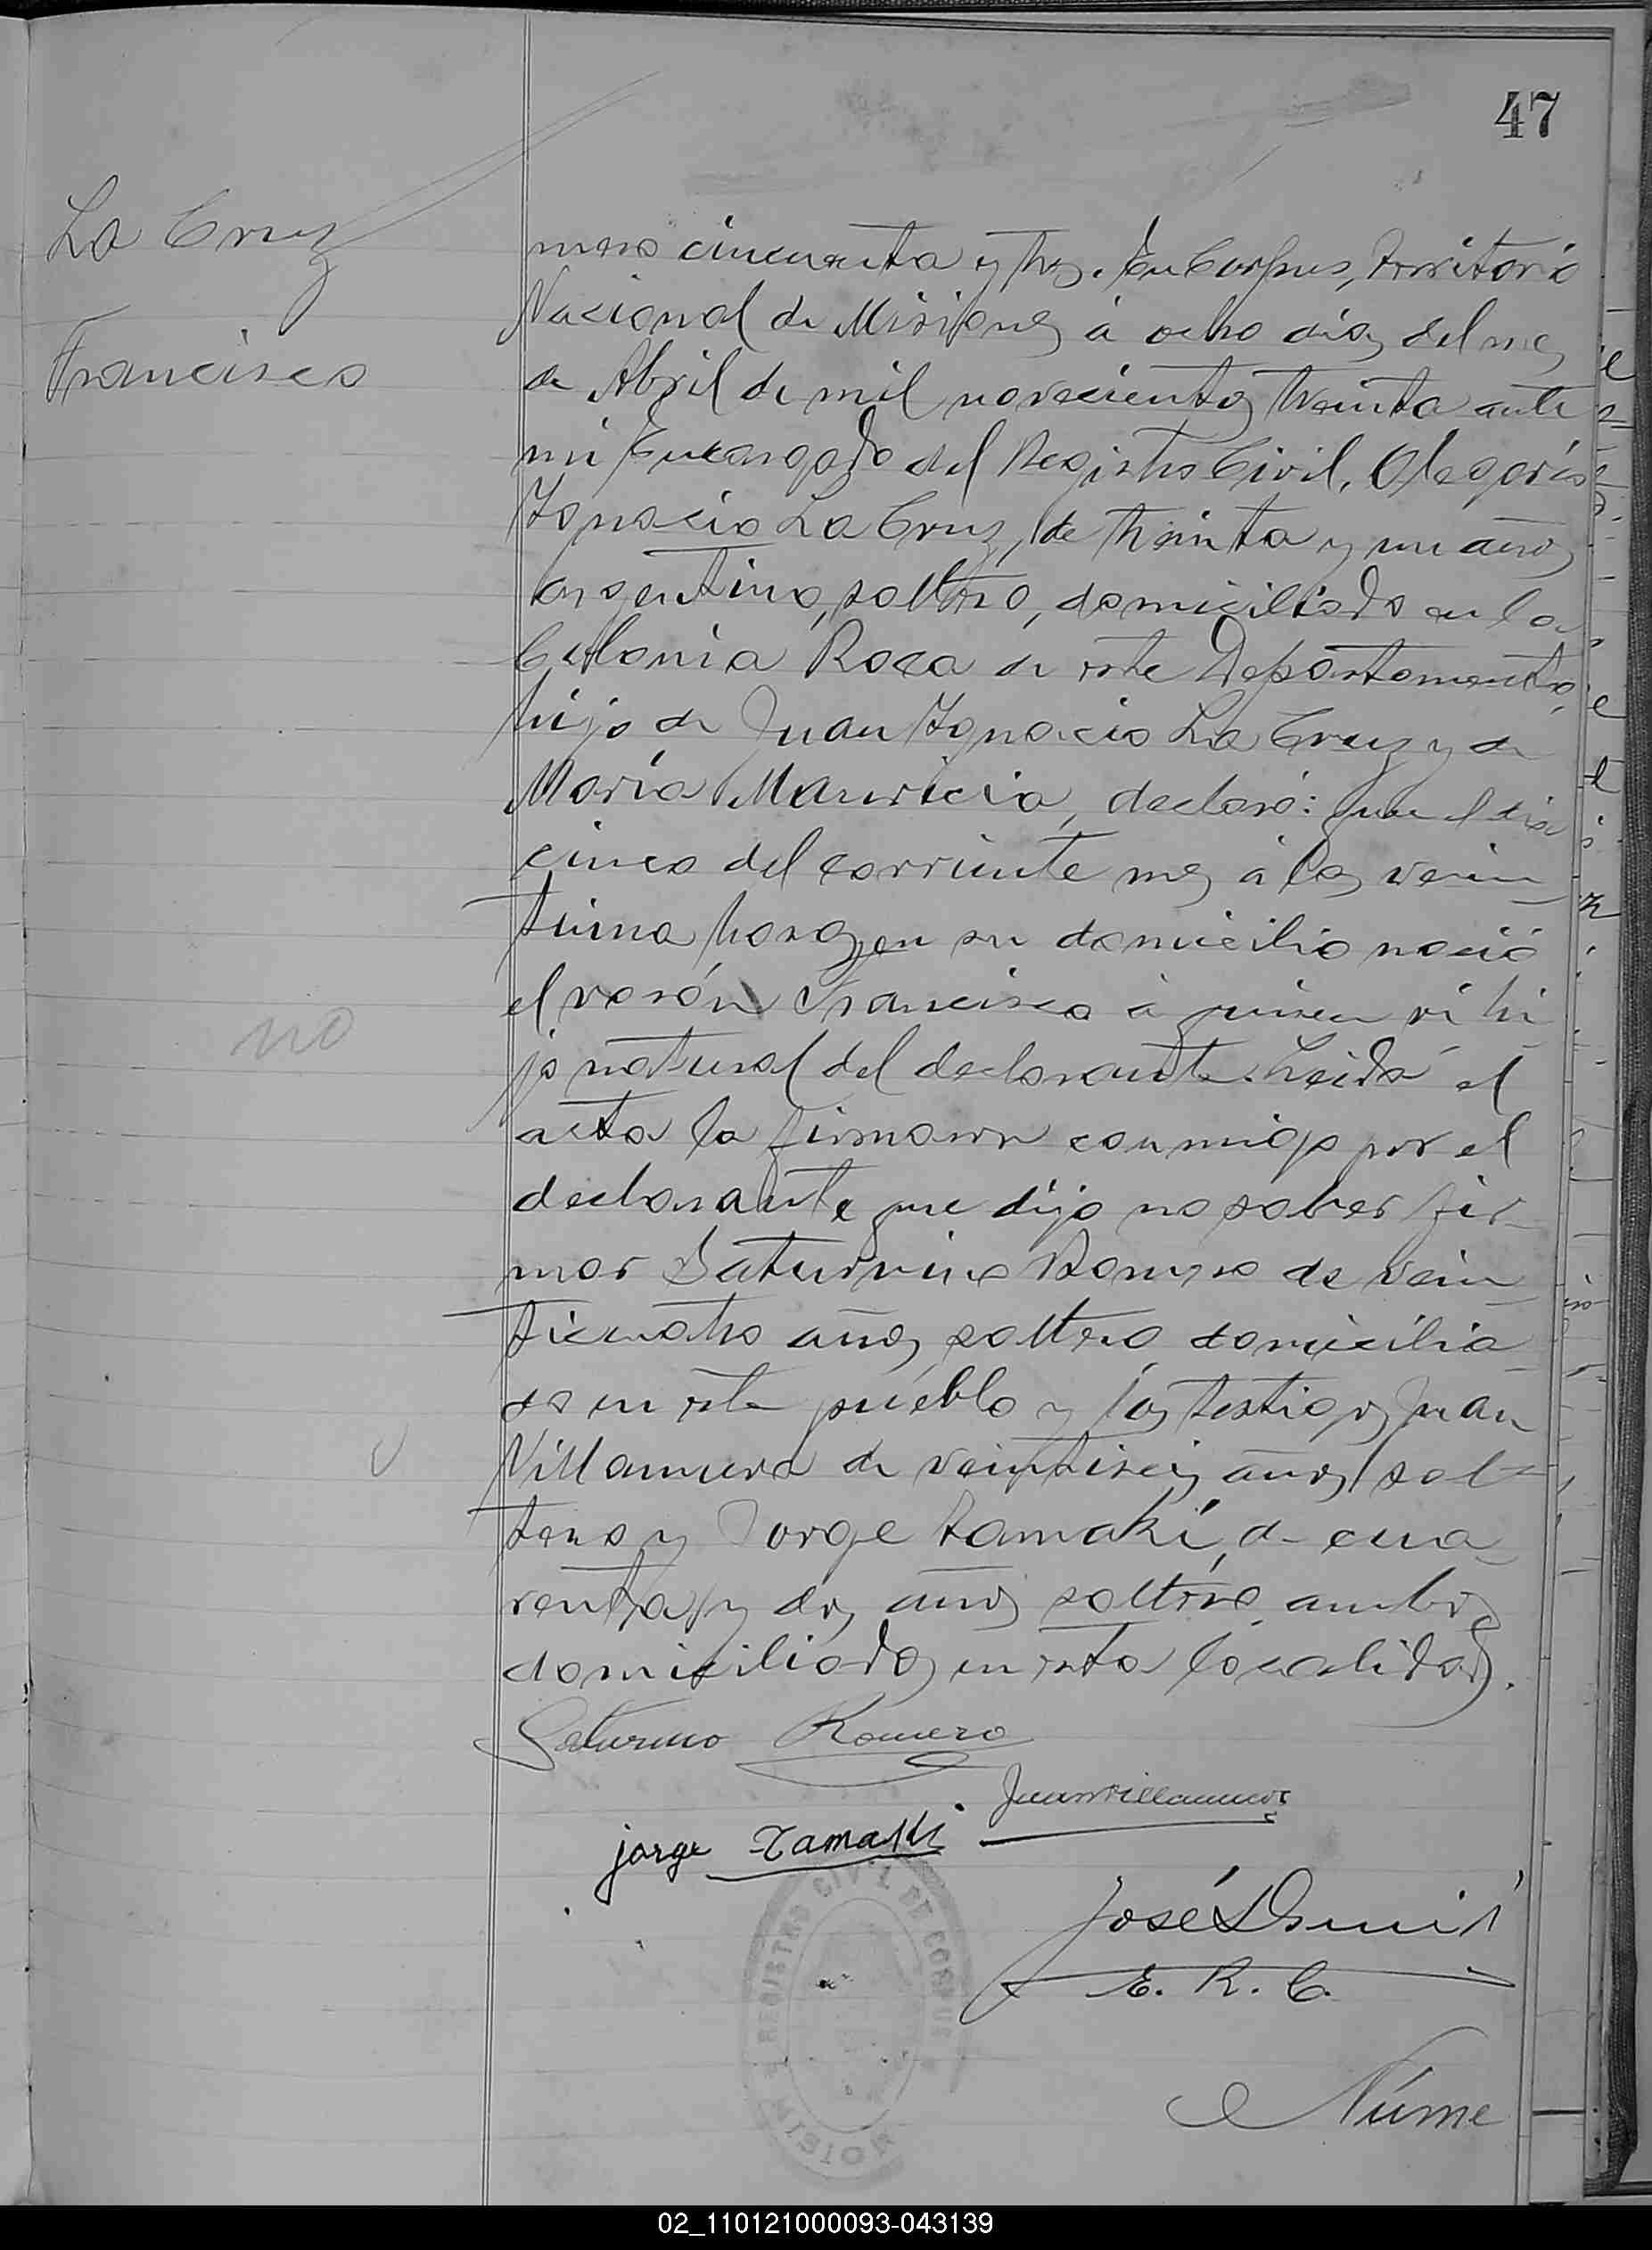 47
La Cruz
Francisco
mero cincuenta y tres. En Corpus, Territorio
Nacional de Misiones á ocho dias del mes
de Abril de mil novecientos treinta ante
mi Encargado del Registro Civil, Olegario
Ignacio La Cruz, de treinta y un años
argentino, soltero, domiciliado en la
Colonia Roca de este Departamento,
hijo de Juan Ignacio La Cruz y de
María Mauricia, declaró: que el dia
cinco del corriente mes á las vein
tiuna horas en su domicilio nació
el varón Francisco á quien vi hi
jo natural del declarante. Leida el
acta la firmaron conmigo por el
declarante que dijo no saber fir
mar Saturnino Romero de vein
ticuatro años soltero domicilia
do en este pueblo y los testigos Juan
Villanueva de veintiseis años sol
tero y Jorge Zamaki, de cua
renta y dos años soltero ambos
domiciliados en esta localidad.
no
Saturnino Romero
Juan Villanueva
jorge Zamaki
José
E. R. C.
REGISTRO CIVIL DE CORPUS
Núme
02_110121000093-043139